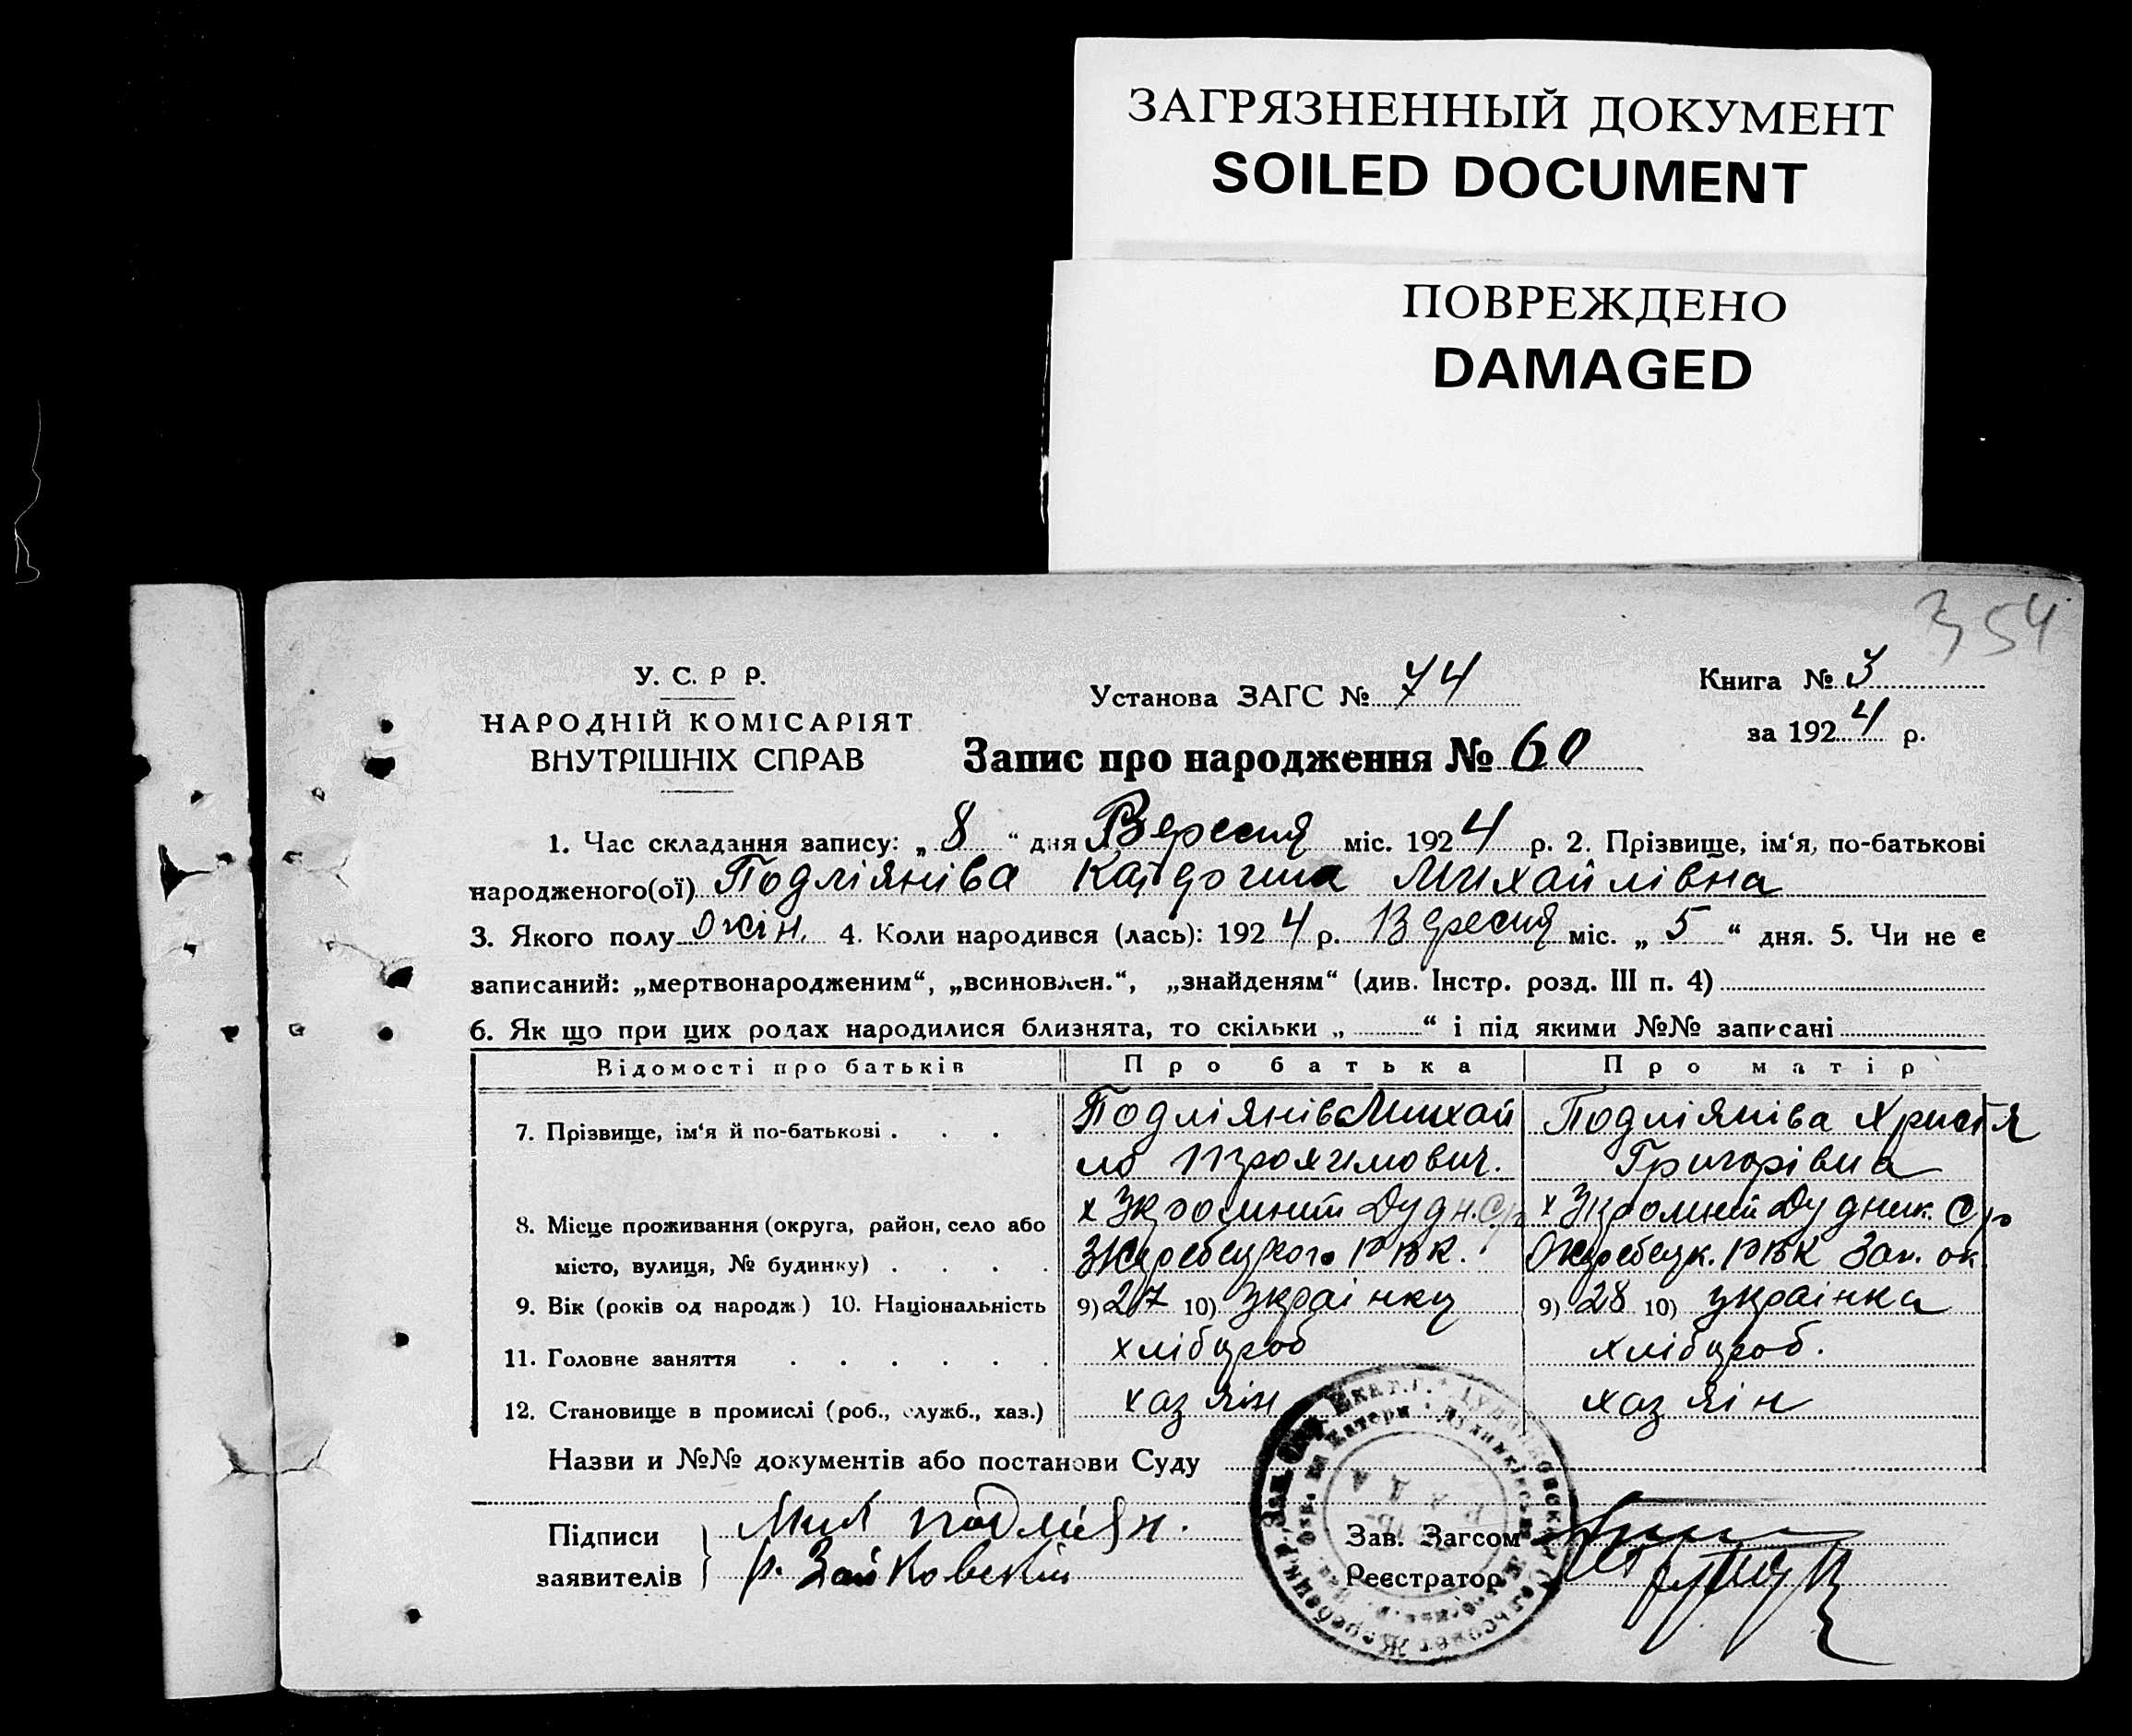 ЗАГРЯЗНЕННЫЙ ДОКУМЕНТ
SOILED DOCUMENT
ПОВРЕЖДЕНО
DAMAGED
354
У. С. Р Р.
НАРОДНІЙ КОМІСАРІЯТ
ВНУТРІШНІХ СПРАВ
Установа ЗАГС № 74
Книга № 3
за 1924 р.
Запис про народження № 60
1. Час складання запису: „ 8 “ дня Вересня міс. 1924 р. 2. Прізвище, ім‘я, по-батькові
народженого(ої) Подліяніва Михайлівна
3. Якого полу жін. 4. Коли народився (лась): 1924 р. Вересня міс. „ 5 “ дня. 5. Чи не є
записаний: „мертвонародженим“, „всиновлен.“, „знайденям“ (див. Інстр. розд. III п. 4)
6. Як що при цих родах народилися близнята, то скільки „ “ і під якими №№ записані
Відомості про батьків Про батька Про матір
7. Прізвище, ім‘я й по-батькові . . . . Подліянів Михай Подліяніва Христя
ло Григорівна
8. Місце проживання (округа, район, село або х Дудн. Ср х Дудник. Ср
місто, вулиця, № будинку) . . . . Жеребецкого РВК. Жеребецк. РВК Зап. ок
9. Вік (років од народж.) 10. Національність 9) 27 10) 9) 28 10) українка
11. Головне заняття . . . . . . хлібороб хлібороб.
12. Становище в промислі (роб., служб., хаз.) хазяін хазяін
Назви и №№ документів або постанови Суду
Підписи
заявителів
Зав. Загсом
Реєстратор